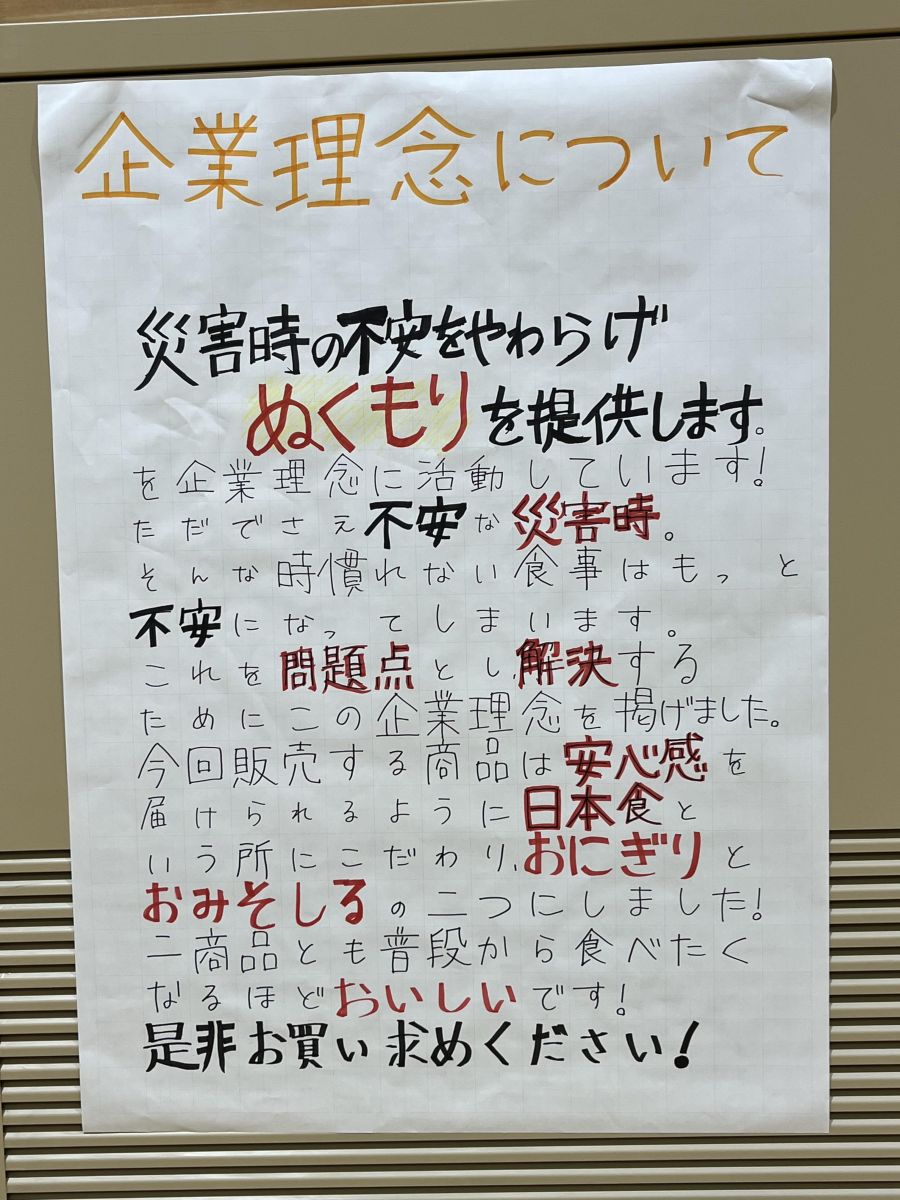 企業理念について
災害時の不安をやわらげ
ぬくもりを提供します。
を企業理念に活動しています!
ただでさえ不安な災害時。
そんな時慣れない食事はもっと
不安になってしまいます。
これを問題点とし、解決する
ためにこの企業理念を掲げました。
今回販売する商品は安心感を
届けられるように日本食と
いう所にこだわり、おにぎりと
おみそしるの二つにしました!
二商品とも普段から食べたく
なるほどおいしいです!
是非お買い求めください!